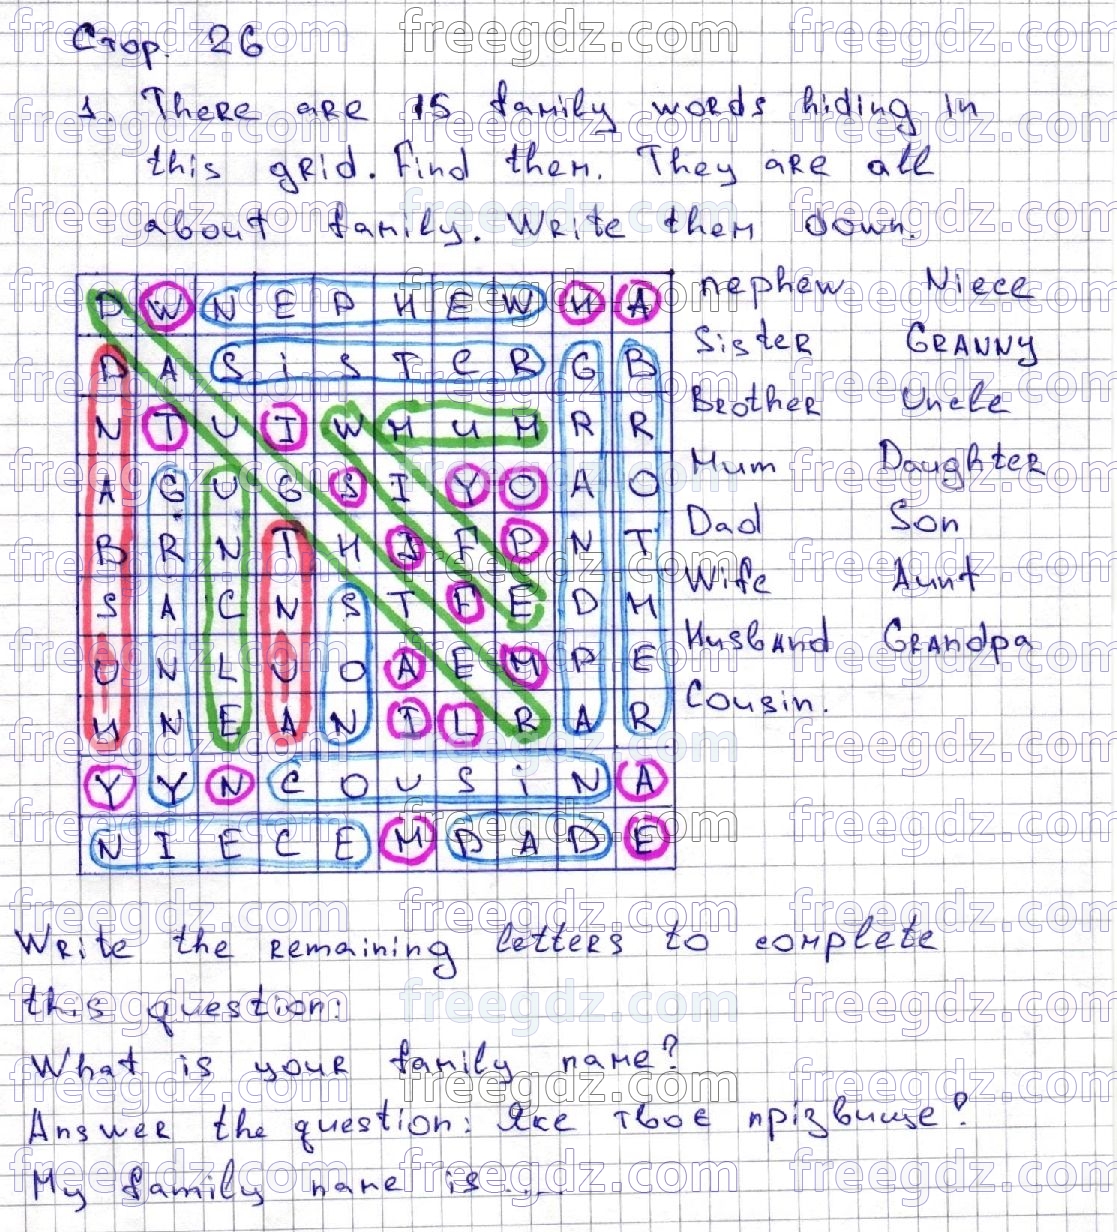 Стор. 26
1. There are 15 family words hiding in
this grid. Find them. They are all
about family. Write them down.
D W N E P H E W H A
D A S i S T E R G B
N T U I W M U M R R
A G U G S I Y O A O
B R N T H I F P N T
S A C N S T F E D H
U N L U O A E M P E
H N E A N I L R A R
Y Y N C O U S i N A
N I E C E M D A D E
nephew Niece
Sister GRANNY
Brother Uncle
Mum Daughter
Dad Son
Wife Aunt
Husband Grandpa
Cousin.
Write the remaining letters to complete
this question:
What is your family name?
Answer the question: Яке твоє прізвище?
My family name is ...
freegdz.com